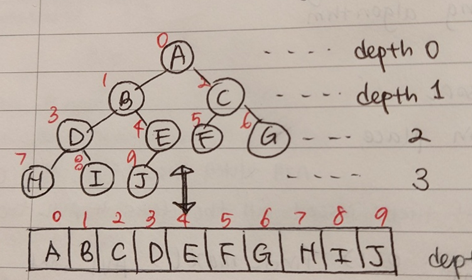 0 A .... depth 0
1 B 2 C .... depth 1
3 D 4 E 5 F 6 G ... 2
7 H 8 I 9 J .... 3
0 1 2 3 4 5 6 7 8 9
A B C D E F G H I J dep